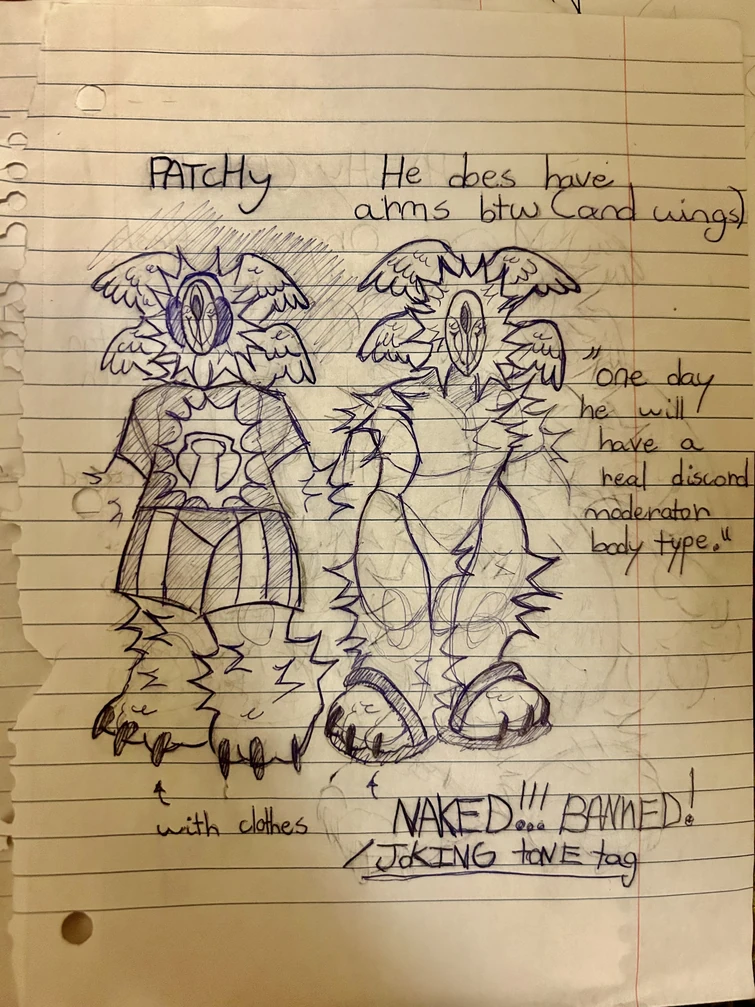 PATCHy
He does have
arms btw (and wings)
"one day
he will
have a
real discord
moderator
body type."
with clothes
NAKED!!! BANNED!
/JOKING tONE tag